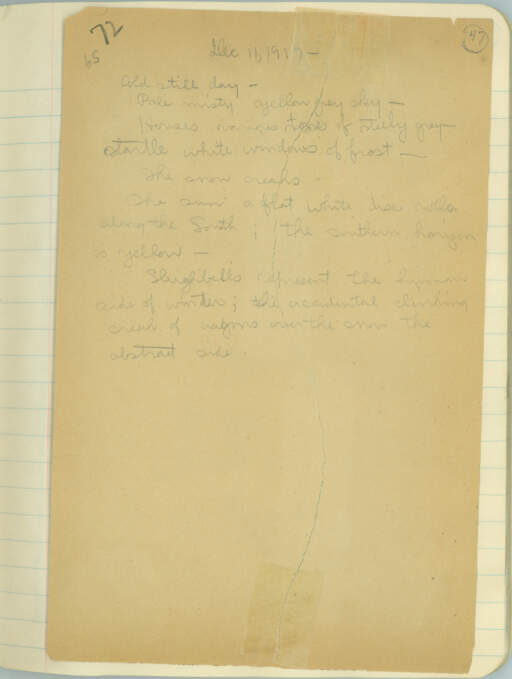 72
65
47
Dec 11, 1917 —
Cold still day —
Pale misty yellow grey sky —
Houses various tones of steely grey
startle white windows of frost —
The snow creaks.
The sun a flat white disc rolls
along the South ; the southern horizon
is yellow —
Sleighbells represent the human
side of winter; the accidental climbing
creak of wagons over the snow the
abstract side.